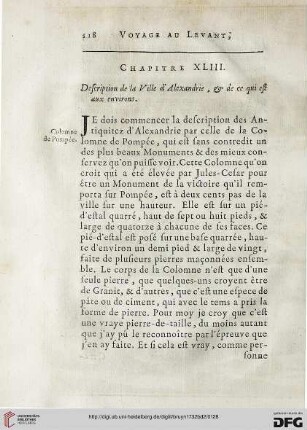 518 VOYAGE AU LEVANT;
CHAPITRE XLIII.
Description de la Ville d'Alexandrie, & de ce qui est
aux environs.
Colomne
de Pompée.
JE dois commencer la description des An-
tiquitez d'Alexandrie par celle de la Co-
lomne de Pompée, qui est sans contredit un
des plus beaux Monuments & des mieux con-
servez qu'on puisse voir. Cette Colomne qu'on
croit qui a été élevée par Jules-Cesar pour
être un Monument de la victoire qu'il rem-
porta sur Pompée, est à deux cents pas de la
ville sur une hauteur. Elle est sur un pié-
d'estal quarré, haut de sept ou huit pieds, &
large de quatorze à chacune de ses faces. Ce
pié-d'estal est posé sur une base quarrée, hau-
te d'environ un demi pied & large de vingt,
faite de plusieurs pierres maçonnées ensem-
ble. Le corps de la Colomne n'est que d'une
seule pierre, que quelques-uns croyent être
de Granit, & d'autres, que c'est une espece de
pâte ou de ciment, qui avec le tems a pris la
forme de pierre. Pour moy je croy que c'est
une vraye pierre-de-taille, du moins autant
que j'ay pû le reconnoître par l'épreuve que
j'en ay faite. Et si cela est vray, comme per-
sonne
http://digi.ub.uni-heidelberg.de/diglit/bruyn1725bd2/0128
UNIVERSITÄTS-
BIBLIOTHEK
HEIDELBERG
Gefördert durch die
DFG